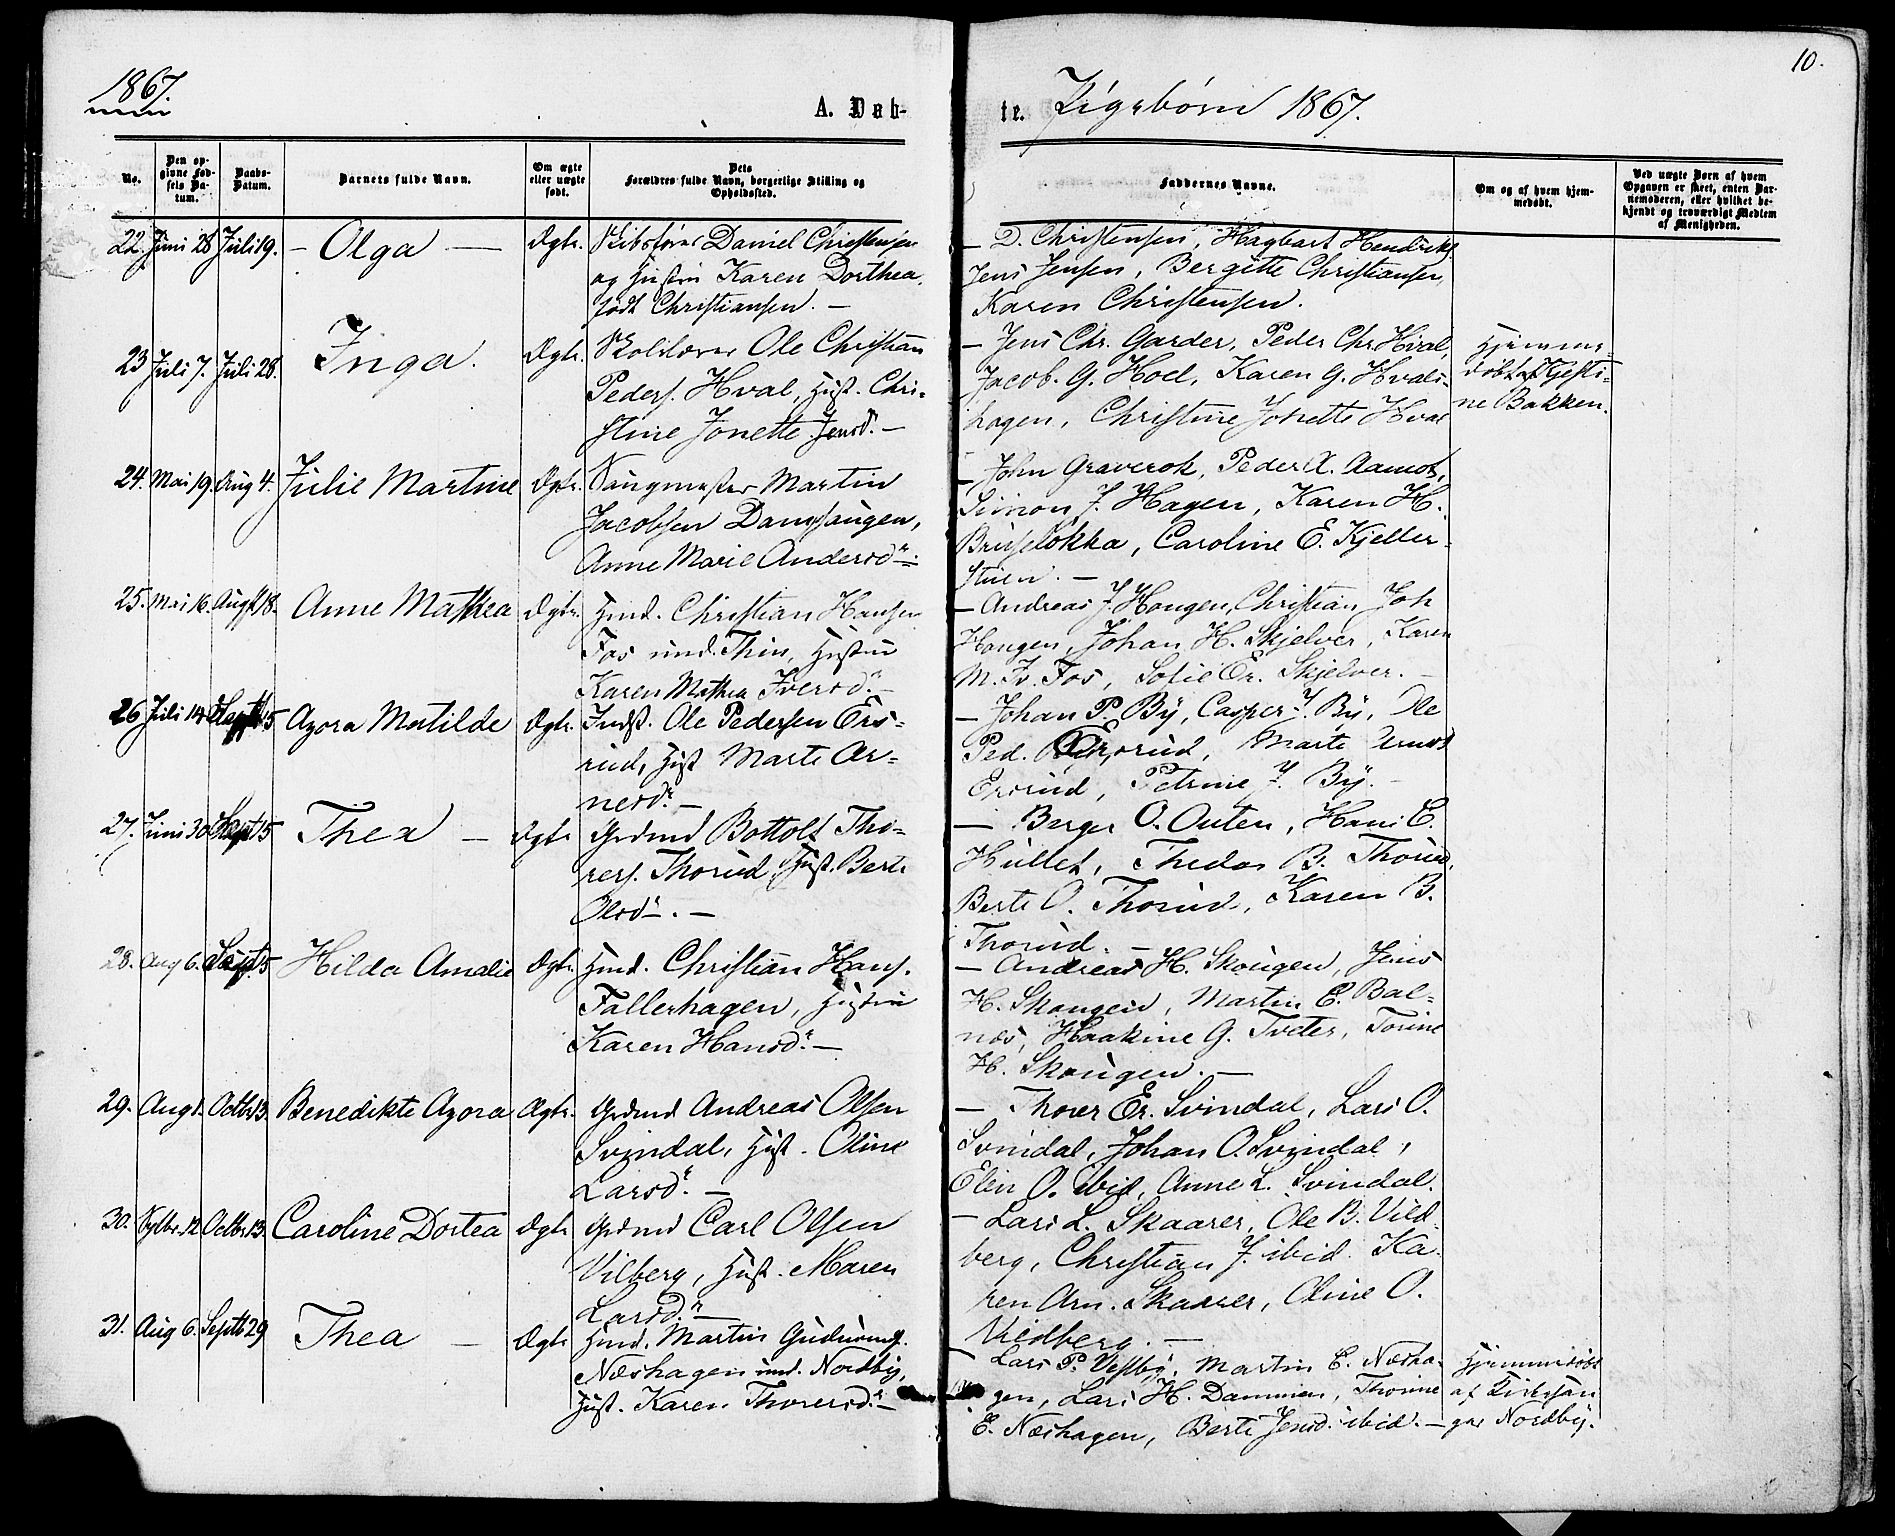 1867
A. Dåb-
te. Pigebørn 1867.
10.
No.
Den op-
givne Fød-
sels Da-
tum.
Daabs-
Datum.
Barnets fulde Navn.
Om ægte
eller uægte
født.
Dets
Forældres fulde Navn, borgerlige Stilling og
Opholdssted.
Faddernes Navne.
Om og af hvem hjem-
medøbt.
Ved uægte Børn af hvem
Opgaven er skeet, enten Bar-
nemoderen, eller hvilket be-
kjendt og troværdigt Medlem
af Menigheden.
22. Juni 28 Juli 19. – Olga – Ægte. Skibsfører Daniel Christensen
og Hustru Karen Dorthea,
født Christiansen. –
– D. Christensen, Hagbart Hendriks.
Jens Jensen, Bergitte Christiansen,
Karen Christensen.
23 Juli 7. Juli 28. Inga. Ægte. Skolelærer Ole Christian
Peders. Hval, Hust. Chri-
stine Jonette Jensd. –
– Jens Chr. Garder, Peder Chr. Hval,
Jacob. G. Hoel, Karen G. Hvals-
hagen, Christine Jonette Hval
Hjemme-
døbt af Kjesti-
ne Bakken.
24. Mai 19. Aug 4. Julie Martine Ægte. Saugmester Martin
Jacobsen Damsaugen,
Anne Marie Andersd. –
– John Graverok, Peder A. Aamot,
Simon J. Hagen, Karen H.
Bruseløkka, Caroline E. Kjeller-
stuen. –
25. Mai 16. Augst 18. Anne Mathea Ægte. Hmd. Christian Hansen
Fos und. Thin, Hustru
Karen Mathea Iversd. –
– Andreas J. Hougen, Christian Joh
Hougen, Johan H. Skjelver, Karen
M. Iv. Fos, Sofie Er. Skjelver. –
26 Juli 14 Sept 15 Agora Matilde Ægte. Indst. Ole Pedersen Ers-
rud, Hust Marte Ar-
nesd. –
– Johan P. By, Casper J. By, Ole
Ped. Ersrud, Marte Arnesd
Ersrud, Petrine J. By. –
27. Juni 30 Sept 15 Thea – Ægte Grdmd Bottolf Tho-
rers. Thorud, Hust. Berte
Olsd. –
– Berger O. Outen, Hans C.
Hullet, Thedor B. Thorud,
Berte O. Thorud, Karen B.
Thorud. –
28. Aug 6. Sept 15 Hilda Amalie Ægte. Hmd. Christian Hans.
Fallerhagen, Hustru
Karen Hansd. –
– Andreas H. Skougen, Jens
H. Skougen, Martin E. Bal-
nes, Haakine G. Tveter, Torine
H. Skougen. –
29. Aug 1. Octbr 13. Benedikte Agora Ægte. Grdmd Andreas Olsen
Svindal, Hust. Oline
Larsd. –
– Thorer Er. Svindal, Lars O.
Svindal, Johan O. Svindal,
Elen O. ibid, Anne L. Svindal.
30. Septbr. 12 Octbr 13. Caroline Dortea Ægte Grdmd Carl Olsen
Vilberg, Hust. Maren
Larsd. –
– Lars L. Skaarer, Ole B. Vild-
berg, Christian J. ibid. Ka-
ren Arn. Skaarer, Oline O.
Vildberg. –
31. Aug 6. Septb 29 Thea – Ægte Hmd. Martin Gudmunds.
Næshagen und. Nordby,
Hust. Karen Thorersd. –
– Lars P. Vestby, Martin E. Næsha-
gen, Lars H. Dammen, Thorine
E. Næshagen, Berte Jensd. ibid. –
Hjemmedøbt
af Kirkesan
ger Nordby.